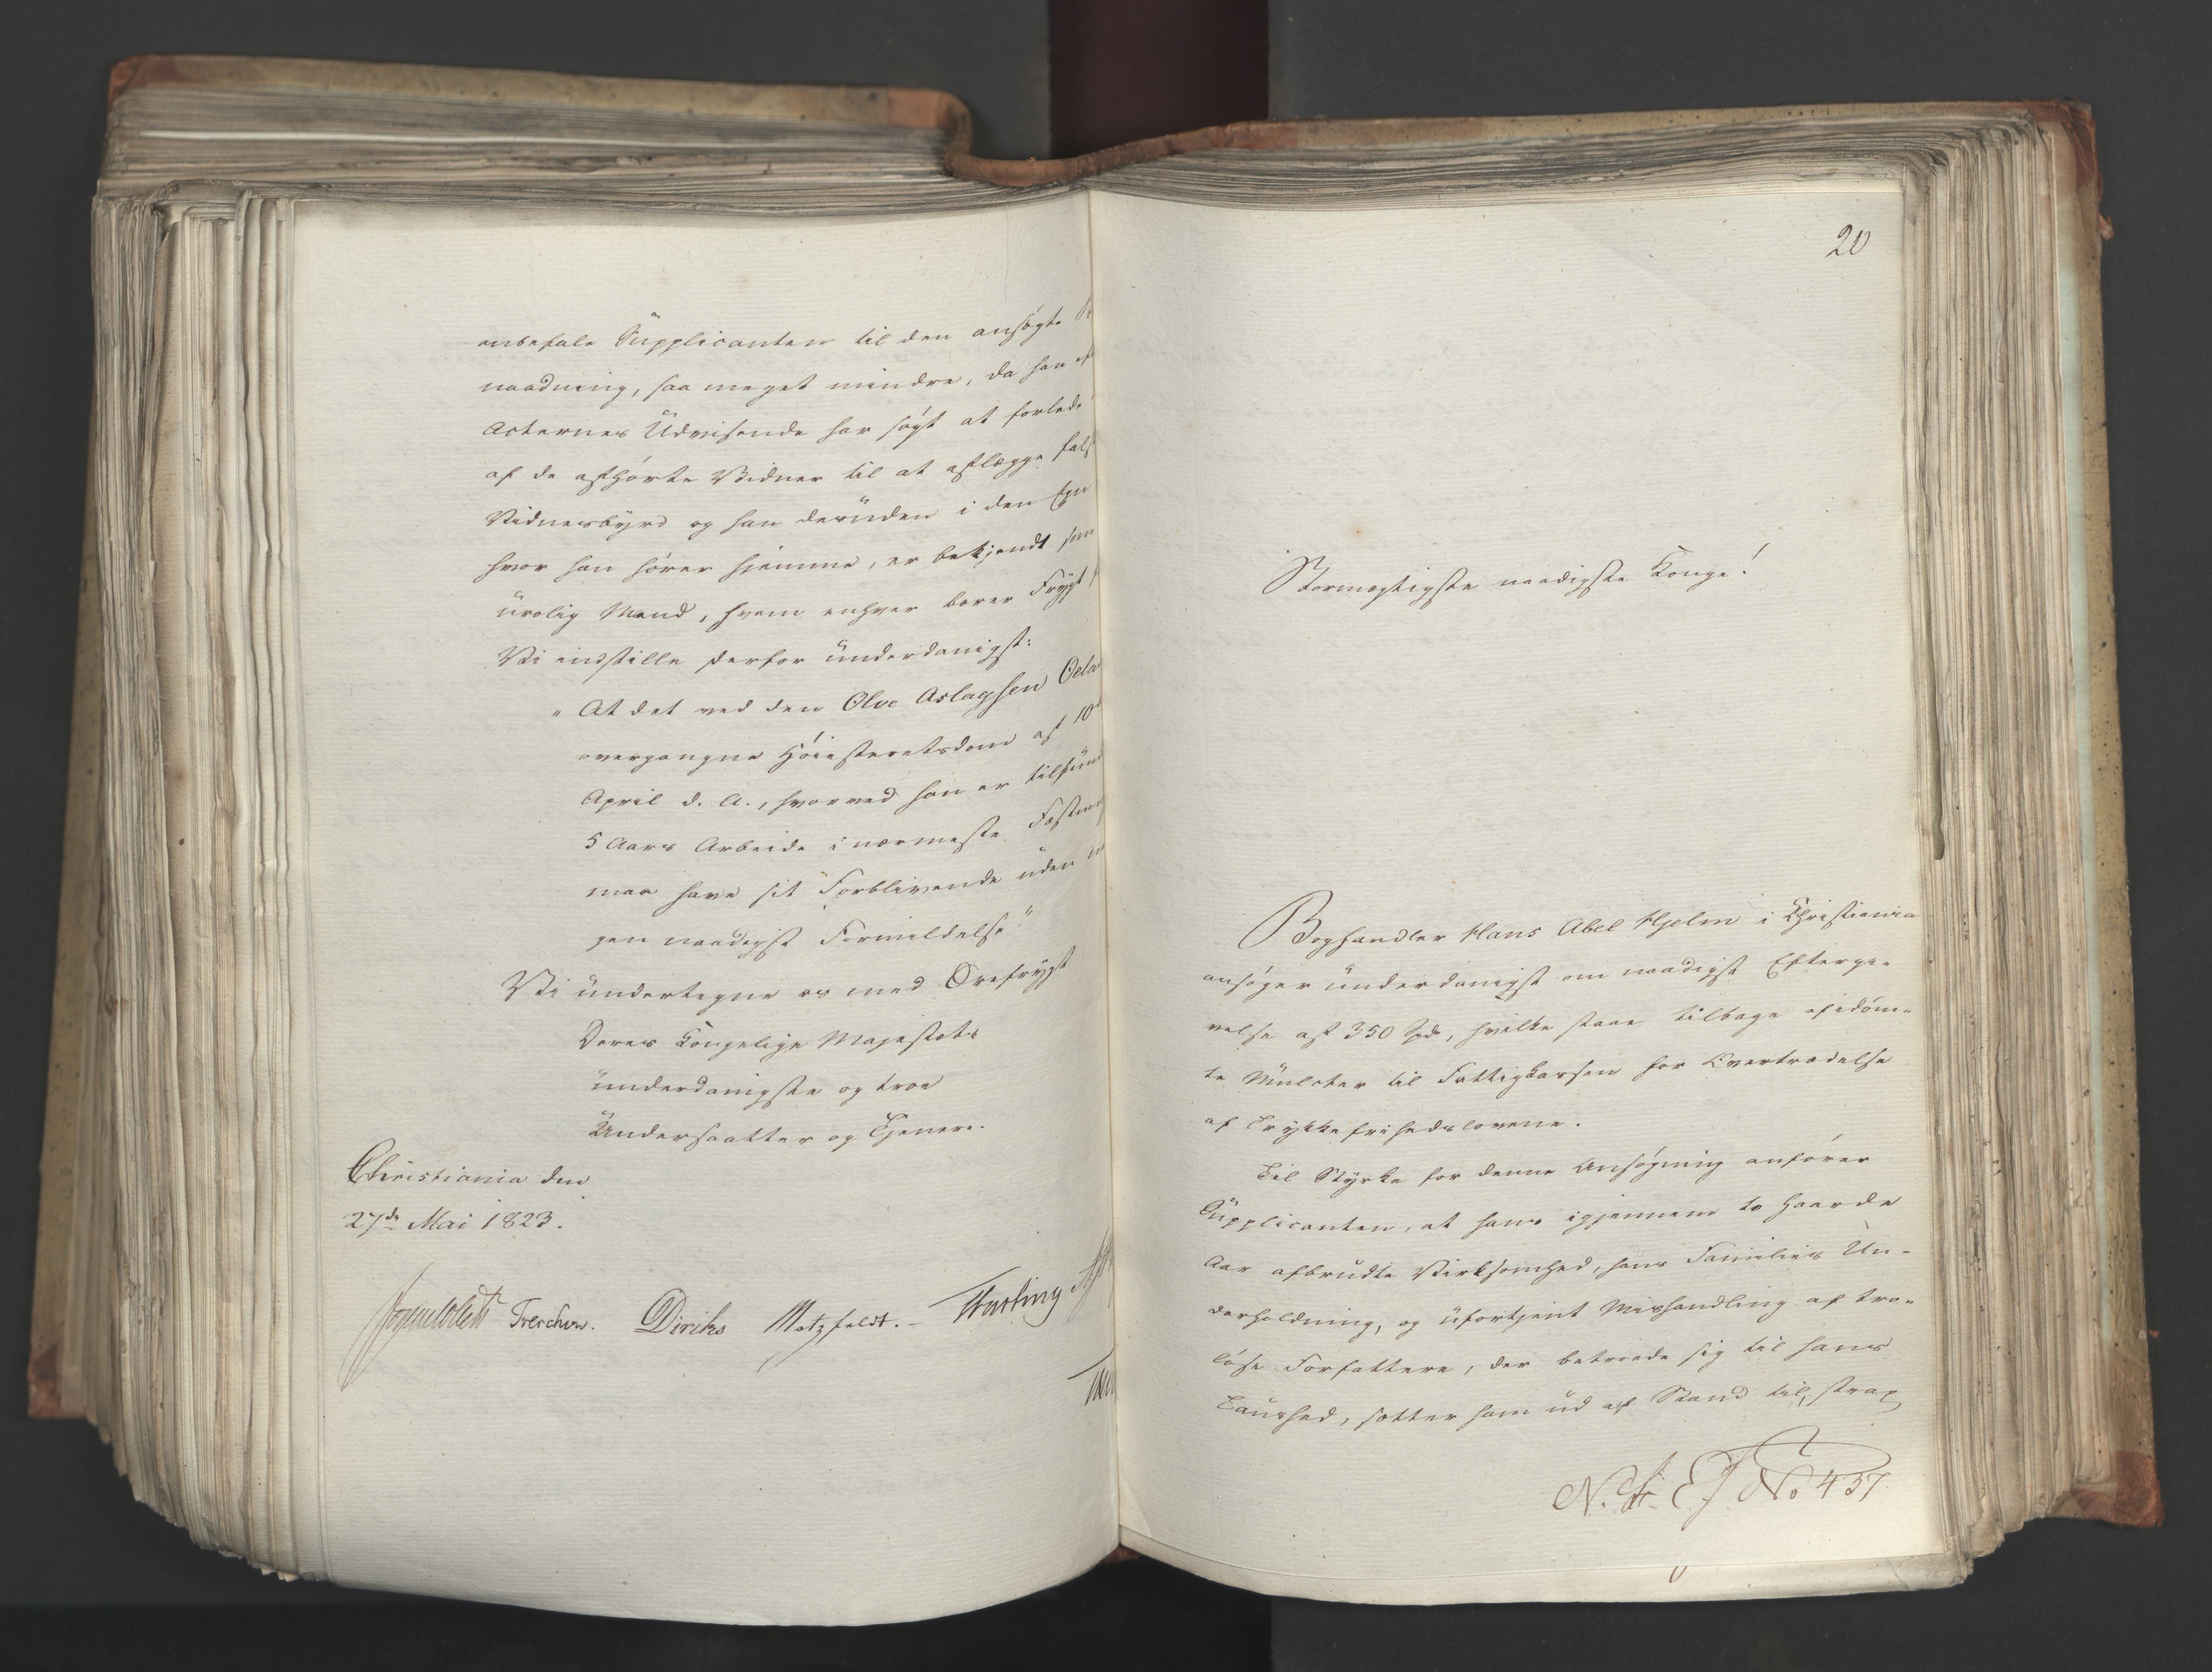 anbefale Supplicanten til den ansøgte
naadning, saa meget mindre, da han
Acternes Udvisende har søgt at forlede
af de afhørte Vidner til at aflægge fals
Vidnesbyrd og han desuden i den Egn
hvor han hører hjemme, er bekjendt som
urolig Mand, hvem enhver bærer Frygt
Vi indstille derfor underdanigst:
"At det ved den Olve Aslagsen
overgangne Høiesteretsdom af 10
April d. A., hvorved han er tilfun
5 Aars Arbeide i nærmeste Fæstning
maa have sit Forblivende uden
gen naadigst Formildelse"
Vi undertegne os med Ærefrygt
Deres Kongelige Majestæts
underdanigste og troe
Undersaatter og Tjenere.
Christiania den
27de Mai 1823.
Sommerhielm Treschow. Diriks Motzfeldt. Fasting
20
Stormægtigste naadigste Konge!
Boghandler Hans Abel Hjelm i Christiania
ansøger underdanigst om naadigst Eftergi-
velse af 350 Spd, hvilke staae tilbage af idøm-
te Mulcter til Fattigkassen for Overtrædelse
af Trykkefrihedslovene.
Til Styrke for denne Ansøgning anfører
Supplicanten, at hans igjennem to haarde
Aar afbrudte Virksomhed, hans Families Un-
derholdning, og ufortjent Mishandling af tro-
løse Forfattere, der betroede sig til hans
Taushed, sætter ham ud af Stand til, strax
No 437